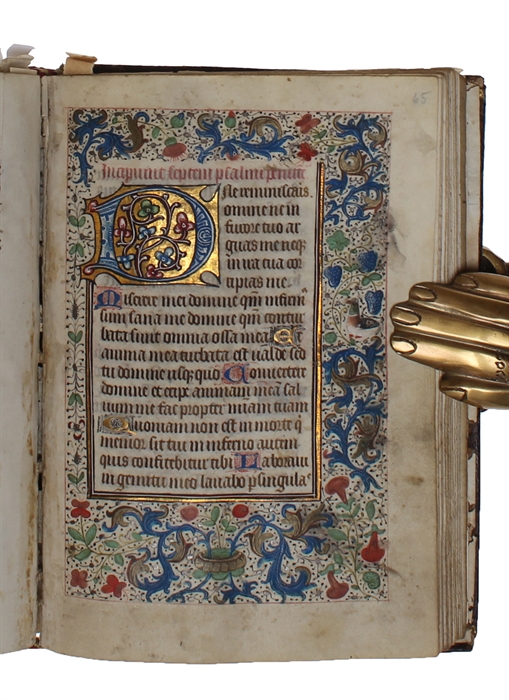 65
Incipiunt septem psalmi peniten
Ne reminiscaris.
omine ne in
furore tuo ar
guas me neqz
in ira tua cor
ripias me.
Miserere mei domine qm infirm9
sum sana me domine qm contur
bata sunt omnia ossa mea Et
anima mea turbata est valde sed
tu domine usquequo Convertere
domine et eripe animam meam sal
vum me fac propter miam tuam
Quoniam non est in morte q
memor sit tui in inferno autem
quis confitebitur tibi Laboravi
in gemitu meo lavabo p singulas